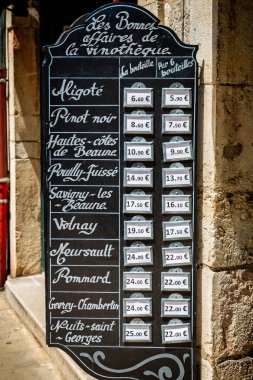 Les Bonnes
affaires de
la vinothèque
La bouteille Par 6 bouteilles
Aligoté 6.60 € 5.90 €
Pinot noir 8.60 € 7.50 €
Hautes-côtes
de Beaune 10.90 € 9.00 €
Pouilly-Fuissé 14.90 € 13.70 €
Savigny-les
-Beaune 17.50 € 16.50 €
Volnay 19.50 € 17.50 €
Meursault 24.00 € 22.00 €
Pommard 24.00 € 22.00 €
Gevrey-Chambertin 24.00 € 22.00 €
Nuits-saint
Georges 25.00 € 22.00 €